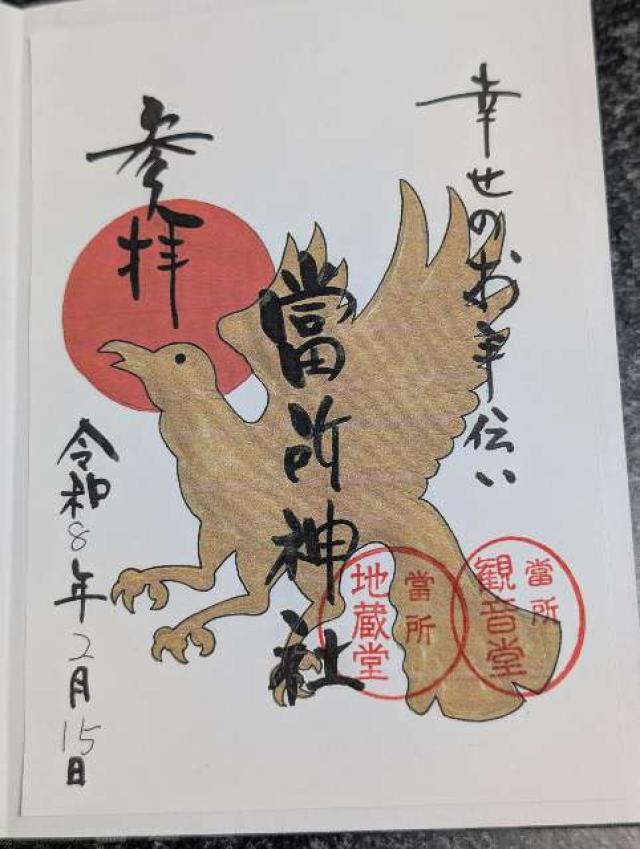 幸せのお手伝い
當所神社
参拝
令和8年2月15日
當所
観音堂
當所
地蔵堂